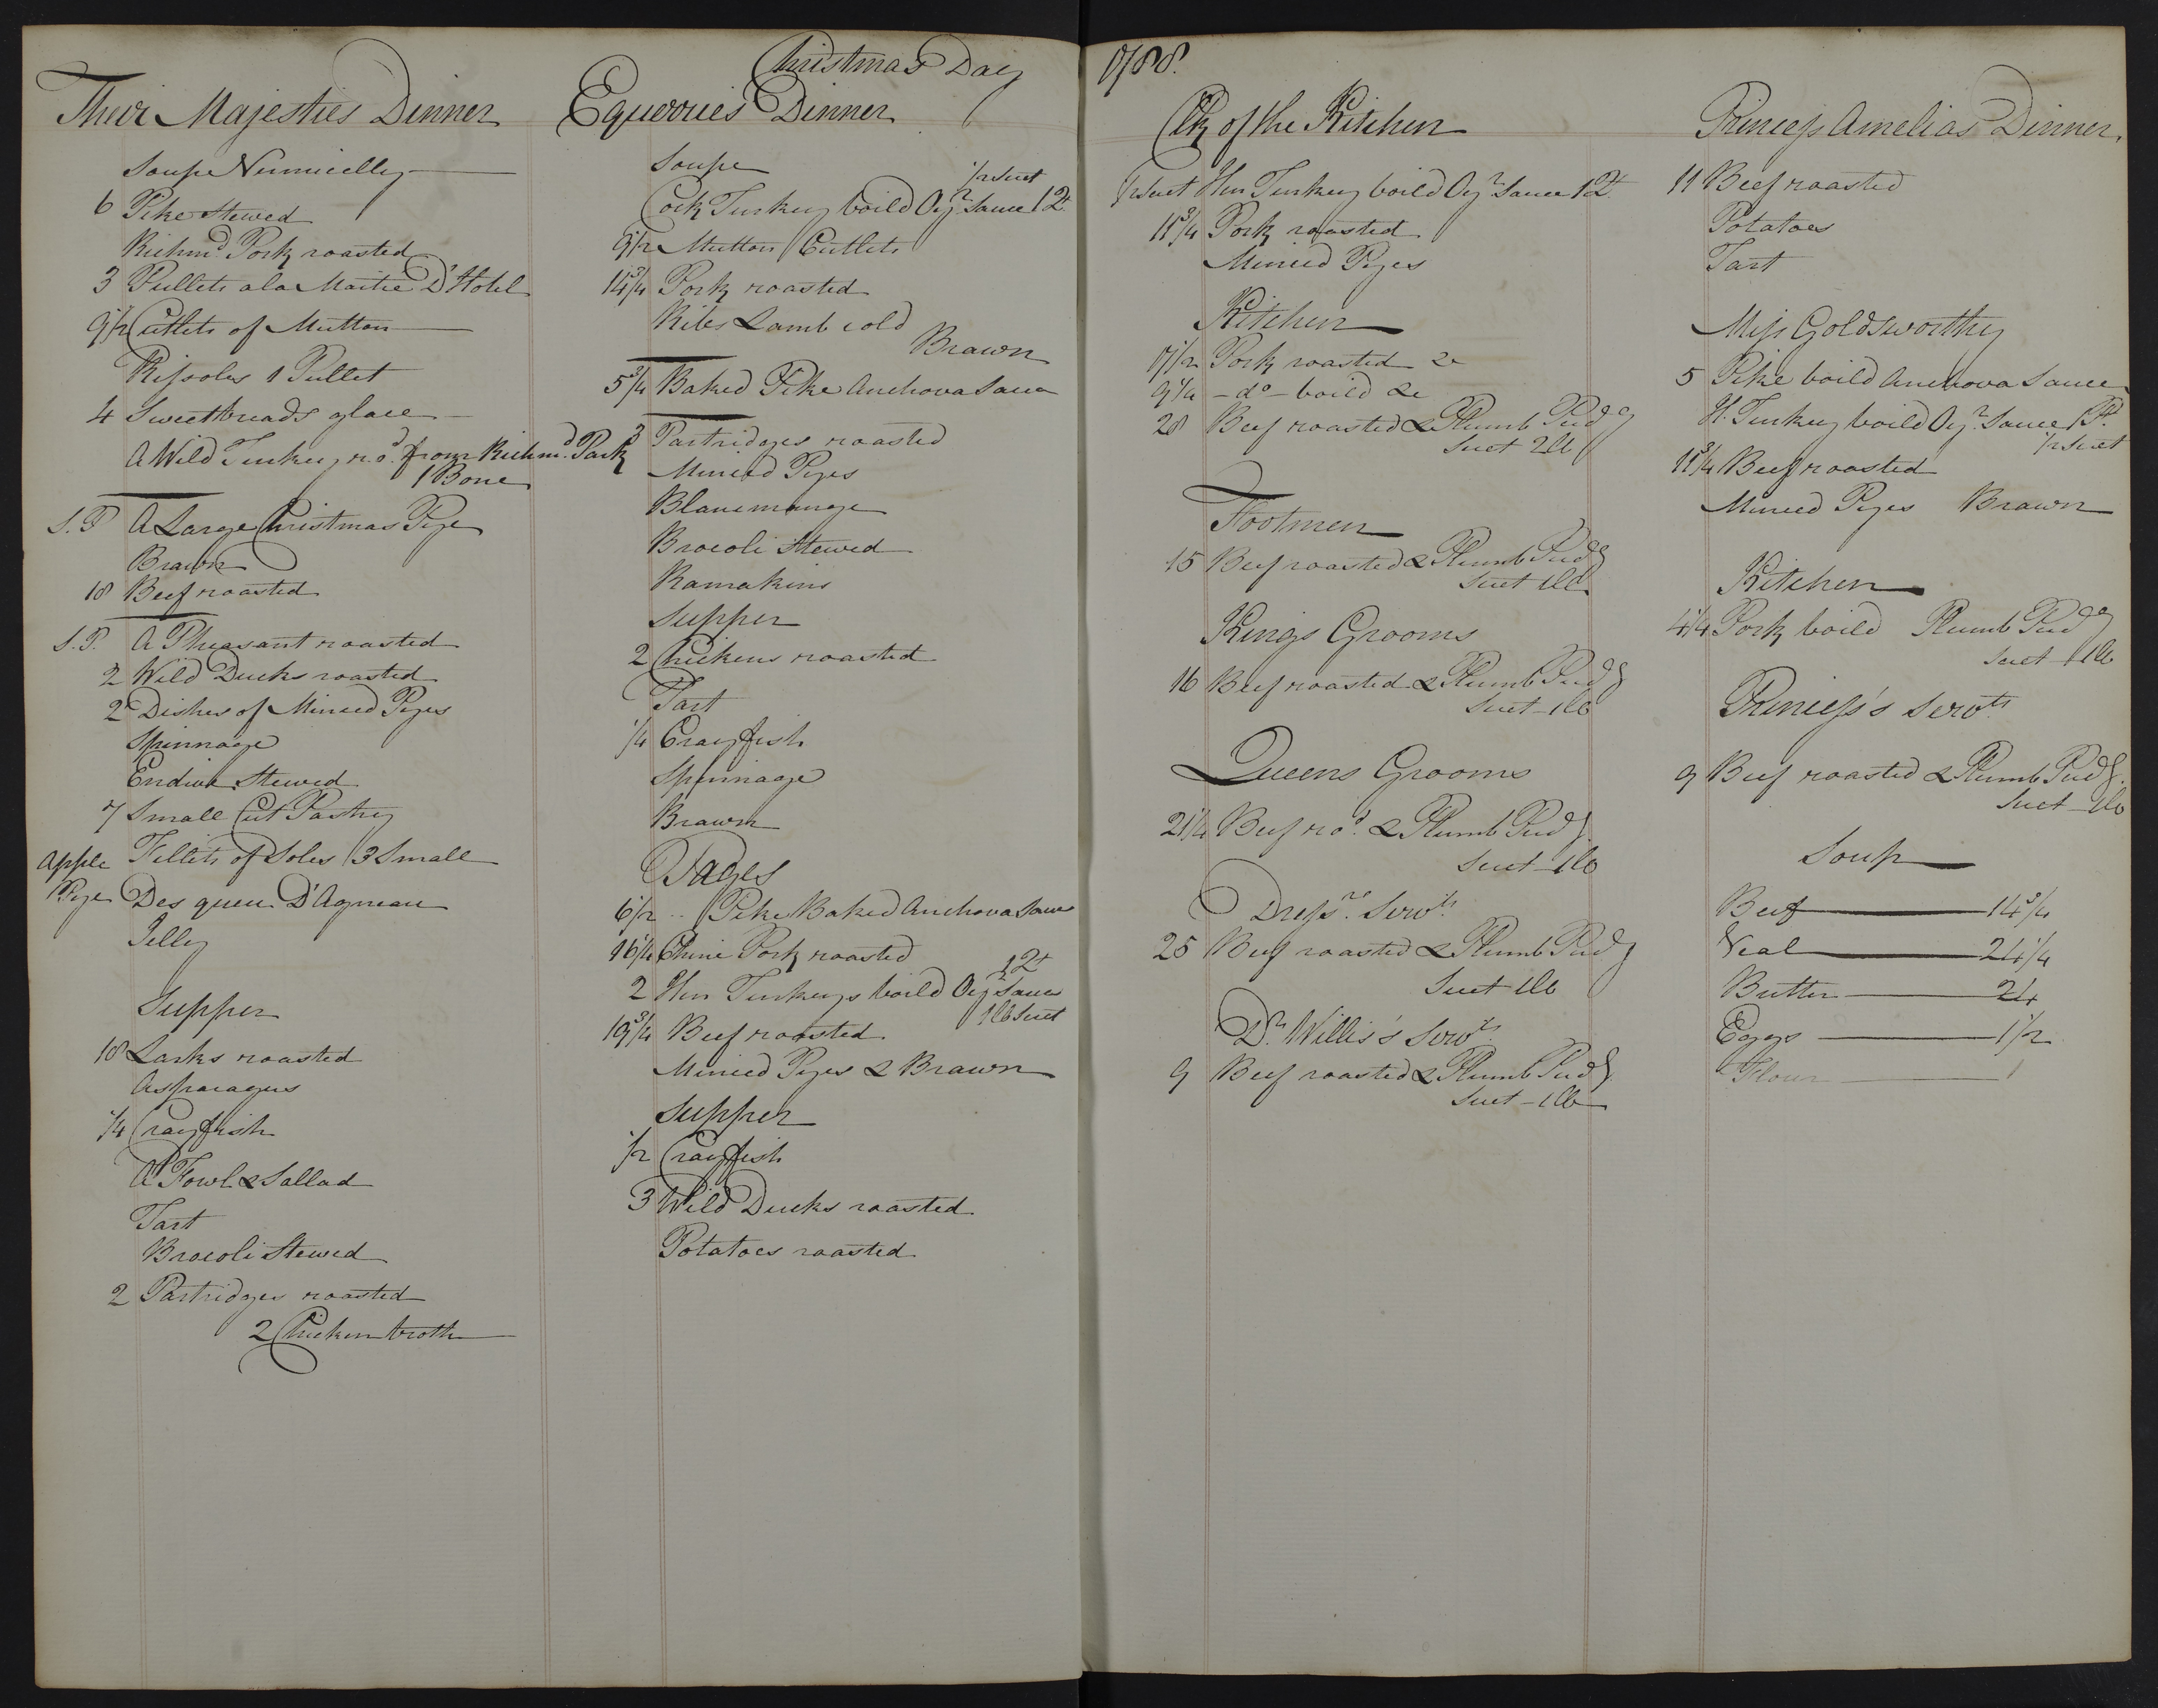 Christmas Day 1788.
Their Majesties Dinner
Soupe Vermicelly
6 Pike Stewed
Richmd. Pork roasted
3 Pullets a la Maitre D'Hotel
9 1/2 Cutlets of Mutton
Rissoles 1 Pullet
4 Sweetbreads glace
A Wild Turkey rod. from Richmd. Park
1 Bone
S. P A Large Christmas Pye
Brawn
18 Beef roasted
S. P. A Pheasant roasted
2 Wild Ducks roasted
2 Dishes of Minced Pyes
Spinnage
Endive Stewed
7 Small Cut Pastry
Apple Pye
Fillets of Soles 3 Small
Des queu D'Agneau
Jelly
Supper
18 Larks roasted
Asparagus
1/4 Crayfish
A Fowl & Sallad
Tart
Brocoli Stewed
2 Partridges roasted
2 Chicken broth
Equerries Dinner
Soupe
1/2 Suet
Cock Turkey boild Oyr. Sauce 1 2t
9 1/2 Mutton Cutlets
14 3/4 Pork roasted
Ribs Lamb cold
Brawn
5 3/4 Baked Pike Anchova Sauce
3 Partridges roasted
Minced Pyes
Blancmange
Brocoli Stewed
Ramakins
Supper
2 Chickens roasted
Tart
1/4 Crayfish
Spinnage
Brawn
Pages
6 1/2 Pike Baked Anchova Sauce
16 1/4 Chine Pork roasted
2 Hen Turkeys boild Oyr Sauce 1 2t
1 lb Suet
19 3/4 Beef roasted
Minced Pyes & Brawn
Supper
1/2 Crayfish
3 Wild Ducks roasted
Potatoes roasted
Clk of the Kitchen
1/2 Suet Hen Turkey boild Oyr Sauce 1 2t
11 3/4 Pork roasted
Minced Pyes
Kitchen
17 1/2 Pork roasted &
9 1/4 - do - boild &
28 Beef roasted & Plumb Pudg
Suet 2 lb
Footmen
15 Beef roasted & Plumb Pudg
Suet 1 lb
Kings Grooms
16 Beef roasted & Plumb Pudg
Suet - 1 lb
Queens Grooms
21 1/4 Beef rod. & Plumb Pudg.
Suet - 1 lb
Dressrs. Servts.
25 Beef roasted & Plumb Pudg
Suet 1 lb
Dr. Willis's Servts
9 Beef roasted & Plumb Pudg.
Suet - 1 lb
Princess Amelias Dinner.
11 Beef roasted
Potatoes
Tart
Miss Goldsworthy
5 Pike boild Anchova Sauce
H. Turkey boild Oyr. Sauce 1 Pt.
1/2 Suet
11 3/4 Beef roasted
Minced Pyes Brawn
Kitchen
4 1/4 Pork boild Plumb Pudg
Suet 1 lb
Princess's Servts
9 Beef roasted & Plumb Pudg.
Suet 1 lb
Soup
Beef 14 3/4
Veal 24 1/4
Butter 24
Eggs 1 1/2
Flour 1